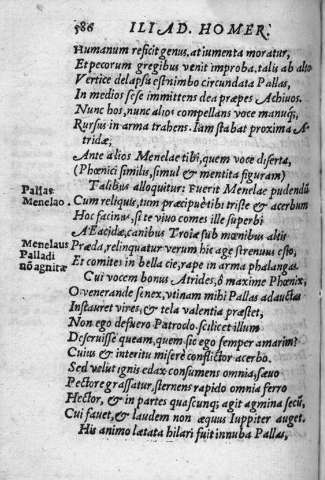 586 ILIAD. HOMER.
Humanum reficit genus, at iumenta moratur,
Et pecorum gregibus venit improba, talis ab alto
Vertice delapsa est nimbo circundata Pallas,
In medios sese immittens dea præpes Achiuos.
Nunc hos, nunc alios compellans voce manuq;,
Rursus in arma trahens. Iam stabat proxima A-
tridæ,
Ante alios Menelae tibi, quem voce diserta,
(Phœnici similis, simul & mentita figuram)
Pallas Talibus alloquitur: Fuerit Menelae pudendũ
Menelao. Cum reliquis, tum præcipuè tibi triste & acerbum
Hoc facinus, si te viuo comes ille superbi
AEacidæ, canibus Troiæ sub mœnibus altis
Menelaus Præda, relinquatur verum hic age strenuus esto,
Palladi Et comites in bella cie, rape in arma phalangas.
nõ agnitæ Cui vocem bonus Atrides, ô maxime Phœnix,
O venerande senex, vtinam mihi Pallas adauctas
Instauret vires, & tela valentia præstet,
Non ego desuero Patroclo. scilicet illum
Deseruisse queam, quem sic ego semper amarim?
Cuius & interitu miserè conflictor acerbo.
Sed velut ignis edax consumens omnia, sæuo
Pectore grassatur, sternens rapido omnia ferro
Hector, & in partes quascunq; agit agmina secũ,
Cui fauet, & laudem non æquus Iuppiter auget.
His animo lætata hilari fuit innuba Pallas,